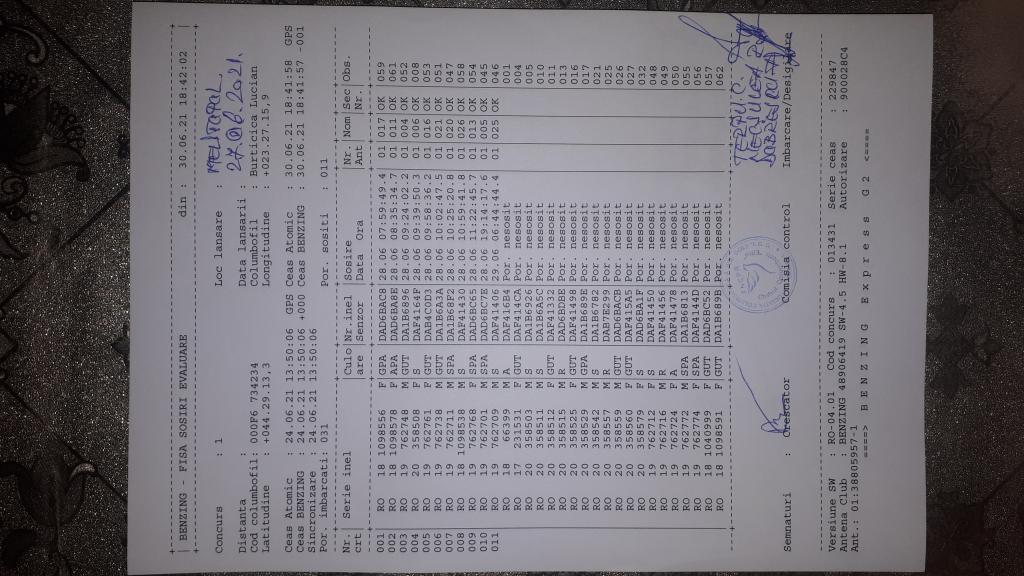 BENZING - FISA SOSIRI EVALUARE din : 30.06.21 18:42:02
Concurs : 1 Loc lansare : MELITOPOL
Distanta : Data lansarii : 27.06.2021.
Cod columbofil: 000F6 734234 Columbofil : Burticica Lucian
Latitudine : +044.29.13,3 Longitudine : +023.27.15,9
Ceas Atomic : 24.06.21 13:50:06 GPS Ceas Atomic : 30.06.21 18:41:58 GPS
Ceas BENZING : 24.06.21 13:50:06 +000 Ceas BENZING : 30.06.21 18:41:57 -001
Sincronizare : 24.06.21 13:50:06
Por. imbarcati: 031 Por. sositi : 011
Nr. Serie inel Culo Nr.inel Sosire Nr. Nom Sec Obs.
crt are Senzor Data Ora Ant Nr.
001 RO 18 1098556 F GPA DAD6BAC8 28.06 07:59:49.4 01 017 OK 059
002 RO 18 1098578 F APA DAD6BA8E 28.06 08:35:34.7 01 011 OK 061
003 RO 19 762748 M GUT DA1B6896 28.06 09:24:02.2 01 004 OK 052
004 RO 20 358508 F S DAF4164F 28.06 09:39:50.3 01 006 OK 008
005 RO 19 762761 F GUT DAB4C0D3 28.06 09:58:36.2 01 016 OK 053
006 RO 19 762738 M GUT DA1B6A3A 28.06 10:02:47.5 01 021 OK 051
007 RO 19 762711 M SPA DA1B68F2 28.06 10:25:20.8 01 020 OK 047
008 RO 18 1098538 M S DAF41430 28.06 10:59:41.8 01 026 OK 058
009 RO 19 762768 F SPA DAD6BC65 28.06 11:22:45.7 01 013 OK 054
010 RO 19 762701 M SPA DAD6BC7E 28.06 19:14:17.6 01 005 OK 045
011 RO 19 762709 M S DAF41406 29.06 06:44:44.4 01 025 OK 046
RO 18 M A Por. nesosit 001
RO 17 231531 F GUT DAF414CA Por. nesosit 004
RO 20 358503 M S DA1B6926 Por. nesosit 005
RO 20 358511 M S DA1B6A5C Por. nesosit 010
RO 20 358512 F GUT DAF41332 Por. nesosit 011
RO 20 358515 M A DAD6BDBE Por. nesosit 013
RO 20 358525 F GUT DAF41498 Por. nesosit 016
RO 20 358529 M GPA DA1B689E Por. nesosit 017
RO 20 358542 F S DA1B6782 Por. nesosit 021
RO 20 358557 M R DAB7E299 Por. nesosit 025
RO 20 358559 M GUT DAD6BACB Por. nesosit 026
RO 20 358560 F GUT DAF415A5 Por. nesosit 027
RO 20 358579 F S DAD6BA1F Por. nesosit 032
RO 19 762712 F S DAF41450 Por. nesosit 048
RO 19 762716 M S DAF41456 Por. nesosit 049
RO 19 762724 M A DAF41478 Por. nesosit 050
RO 19 762772 M SPA DA1B6813 Por. nesosit 055
RO 19 762774 F SPA DAF4144D Por. nesosit 056
RO 18 1040999 F GUT DAD6BC52 Por. nesosit 057
RO 18 1098591 F GUT DA1B689B Por. nesosit 062
Semnaturi : Crescator Comisia control Imbarcare/Desigilare
Versiune SW : RO-04.01 Cod concurs : 013431 Serie ceas : 229847
Antena Club : BENZING 48906419 SW-4.5 HW-8.1 Autorizare : 900028C4
Ant.: 01:38805957-1
====> B E N Z I N G E x p r e s s G 2 <====